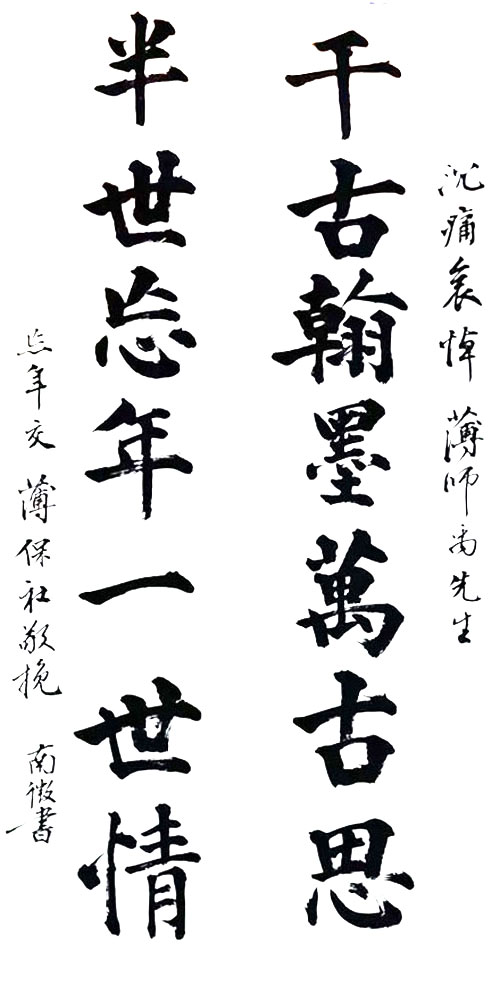 沉痛哀悼薄师禹先生
千古翰墨萬古思
半世忘年一世情
忘年交薄保社敬挽
南徵書